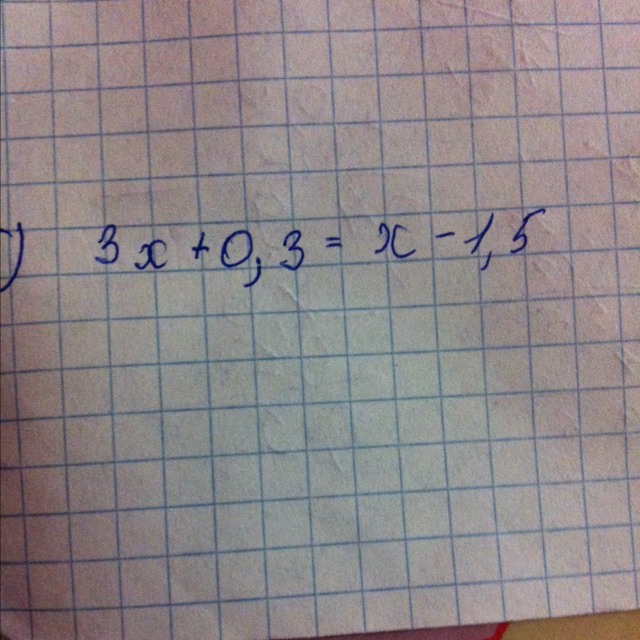 ) 3x+0,3=x-1,5